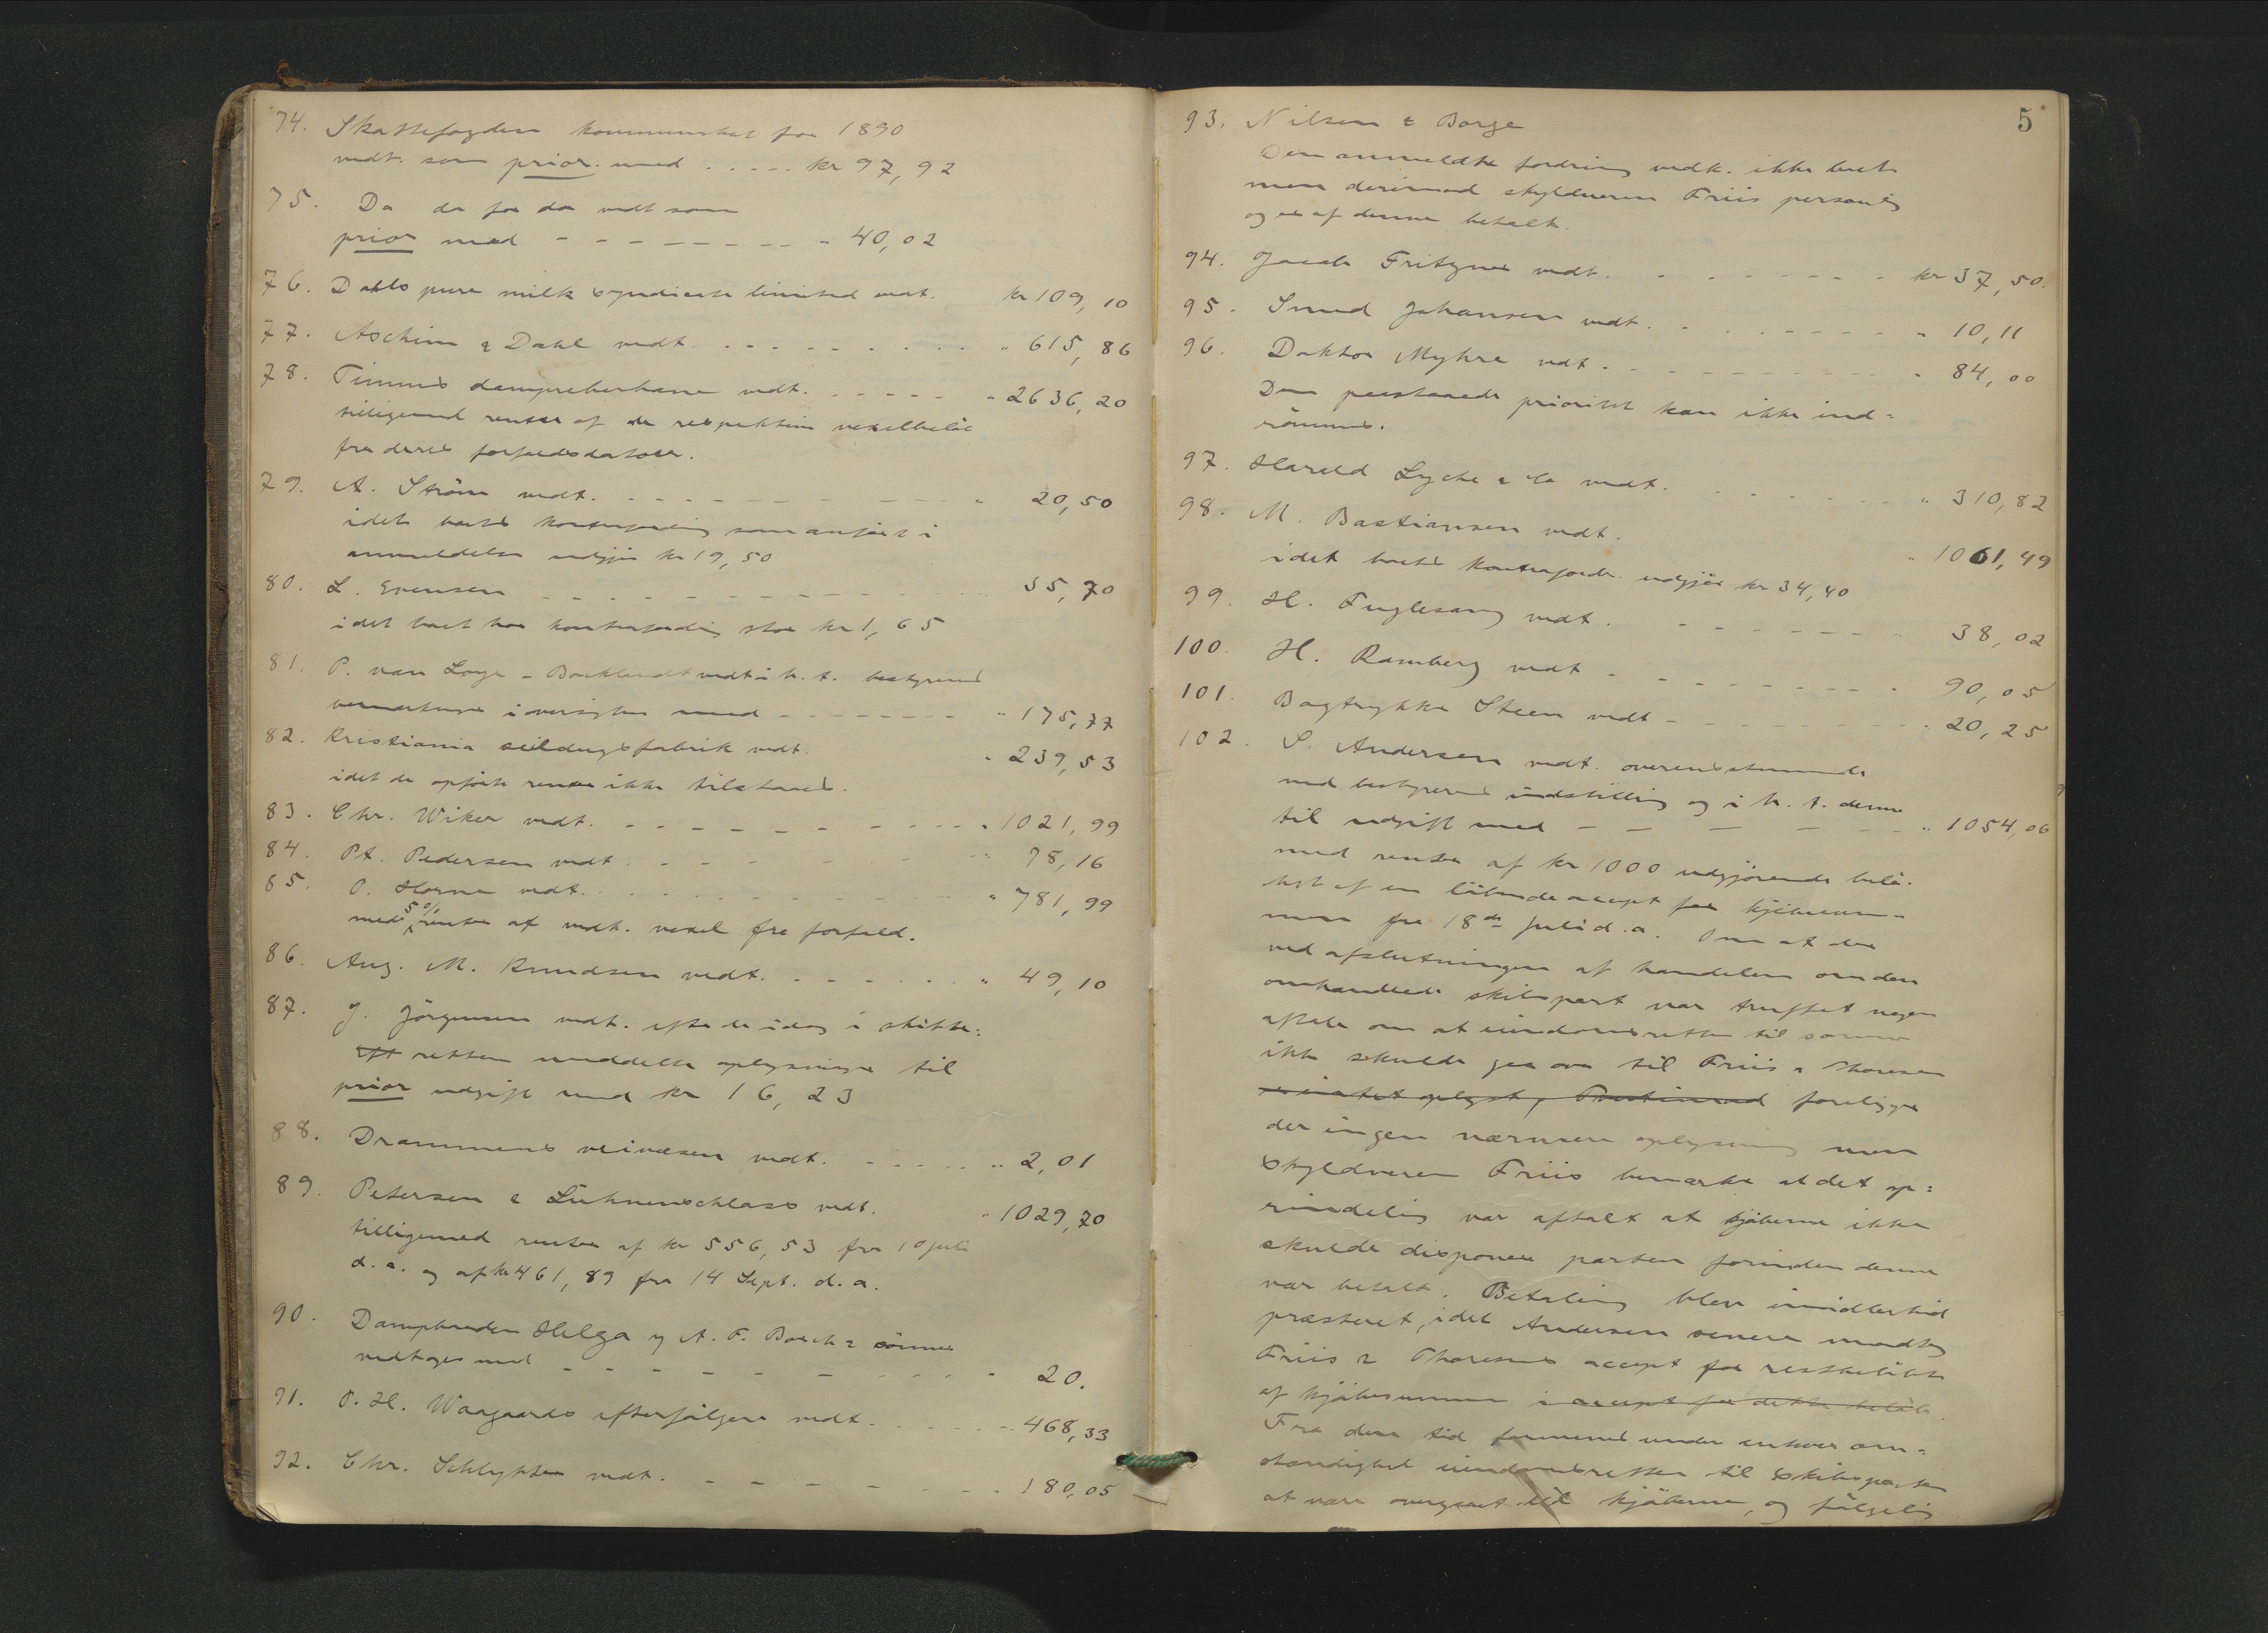 74. Skattefogden kommuneskat for 1890
vedt. som prior. med . . . . . kr 97,92
75. Do do for do vedt som
prior med - - - - - - - - - " 40,02
76. Dahls pure milk syndicate limited vedt. kr 109,10
77. Aschim & Dahl vedt. - - - - - - - - - " 615,86
78. Timms dampreberbane vedt. - - - - - " 2636,20
tilligemed renter af de respektive vexelbeløb
fra deres forfaldsdatoer.
79. A. Ström vedt. - - - - - - - - - - - " 20,50
idet boets kontrafordring som anført i
anmeldelse udgjør kr 19,50
80. L. Evensen - - - - - - - - - - - - - 35,70
idet boet har kontrafordring stor kr 1,65
81. P. van Loge - Boeklandt vedt i h. t. bestyrerens
bemærkninger i oversigten med - - - - - - - - " 175,77
82. Kristiania seildugsfabrik vedt. " 239,53
idet de opførte renter ikke tilstaaes.
83. Chr. Wiker vedt. - - - - - - - - - - - " 1021,99
84. Pt. Pedersen vedt. - - - - - - - - " 78,16
85. O. Horne vedt. - - - - - - - - - - - " 781,99
med 5% renter af vedk. vexel fra forfald.
86. Aug. M. Knudsen vedt. - - - - - - - " 49,10
87. J. Jörgensen vedt. efter de idag i skifte-
eft retten meddelte oplysninger til
prior udgift med kr 16,23
88. Drammens veivæsen vedt. - - - - - " 2,01
89. Petersen & Lühnenschlass vedt. " 1029,70
tilligemed renter af kr 556,53 fra 10 juli
d. a. og af kr 461,89 fra 14 Sept. d. a.
90. Dampbaaden Helga og A. F. Bosch & sönner
vedtages med - - - - - - - - - - " 20.
91. O. H. Waagaards efterfølgere vedt. - - - - - 468,33
92. Chr. Schlytter vedt. - - - - - - - - - 180,05
5
93. Nilsen & Borge
Den anmeldte fordring vedk. ikke boet
men derimod skyldneren Friis personlig
og er af denne betalt.
94. Jacob Fritzner vedt. - - - - - - - - kr 37,50.
95. Smed Johansen vedt. - - - - - - - - " 10,11
96. Doktor Myhre vedt. - - - - - - - - - " 84,00
Den paastaaede prioritet kan ikke ind-
rømmes.
97. Harald Lyche & Co vedt. - - - - - - - " 310,82
98. M. Bastiansen vedt. " 1061,49
idet boets kontraford. udgjør kr 34,40
99. H. Fuglesang vedt. - - - - - - - " 38,02
100. H. Ramberg vedt - - - - - - - - 90,05
101. Bogtrykker Steen vedt - - - - - - - - " 20,25
102. S. Andersen vedt. overensstemmende
med bestyrerens indstilling og i h. t. denne
til udgift med - - - - - - - " 1054,06
med renter af kr 1000 udgjørende belø-
bet af en løbende accept for kjøbesum-
men fra 18de Juli d. a. Om at der
ved afslutningen af handelen om den
omhandlede skibspart var truffet nogen
aftale om at eiendomsretten til samme
ikke skulde gaa over til Friis & Thoresen
er intet oplyst, Tvertimod foreligger
der ingen nærmere oplysning men
skyldneren Friis bemærker at det op-
rindelig var aftalt at kjøberne ikke
skulde disponere parten forinden denne
var betalt. Betaling blev imidlertid
præsteret, idet Andersen senere modtog
Friis & Thoresens accept for restbeløbet
af kjøbesummen i accept for dette beløb.
Fra den tid formenes under enhver om-
stændighed eiendomsretten til skibsparten
at være overgaaet til kjøberne, og følgelig